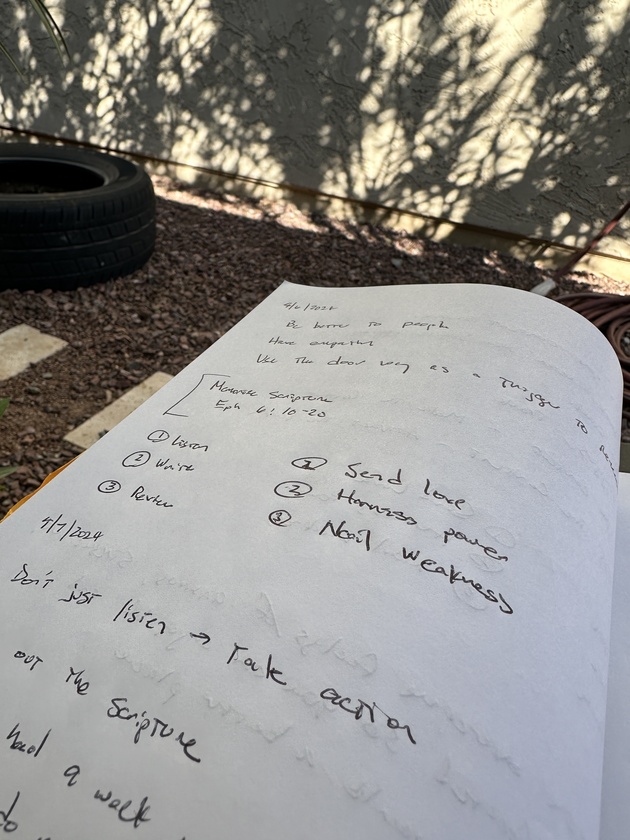 5/6/2024
Be     to people
Have
Use The door way as a Trigger To
Memorize Scripture
Eph 6:10-20
① Listen
② Write
③ Review
① Send love
② Harness power
③ Nail weakness
5/7/2024
Don't just listen → Take action
out The Scripture
a week